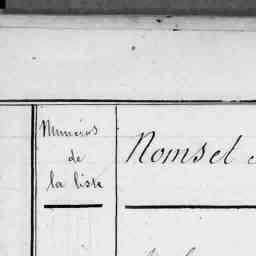 Numéros
de
la liste
Noms et